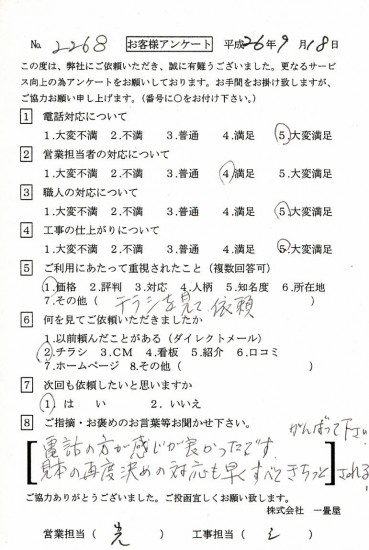 No. 2268 お客様アンケート 平成26年9月18日
この度は、弊社にご依頼いただき、誠に有難うございました。更なるサービ
ス向上の為アンケートをお願いしております。お手間をお掛け致しますが、
ご協力お願い申し上げます。(番号に○をお付け下さい。)
1 電話対応について
1.大変不満 2.不満 3.普通 4.満足 5.大変満足
2 営業担当者の対応について
1.大変不満 2.不満 3.普通 4.満足 5.大変満足
3 職人の対応について
1.大変不満 2.不満 3.普通 4.満足 5.大変満足
4 工事の仕上がりについて
1.大変不満 2.不満 3.普通 4.満足 5.大変満足
5 ご利用にあたって重視されたこと(複数回答可)
1.価格 2.評判 3.対応 4.人柄 5.知名度 6.所在地
7.その他(チラシを見て依頼)
6 何を見てご依頼いただきましたか
1.以前頼んだことがある(ダイレクトメール)
2.チラシ 3.CM 4.看板 5.紹介 6.口コミ
7.ホームページ 8.その他( )
7 次回も依頼したいと思いますか
1) は い 2. いいえ
8 ご指摘・お褒めのお言葉等お聞かせ下さい。
電話の方が感じが良かったです。
見本の再度決めの対応も早くすべてきちっとされる
がんばって下さい
ご協力ありがとうございました。ご投函宜しくお願い致します。
株式会社 一畳屋
営業担当( ) 工事担当( )